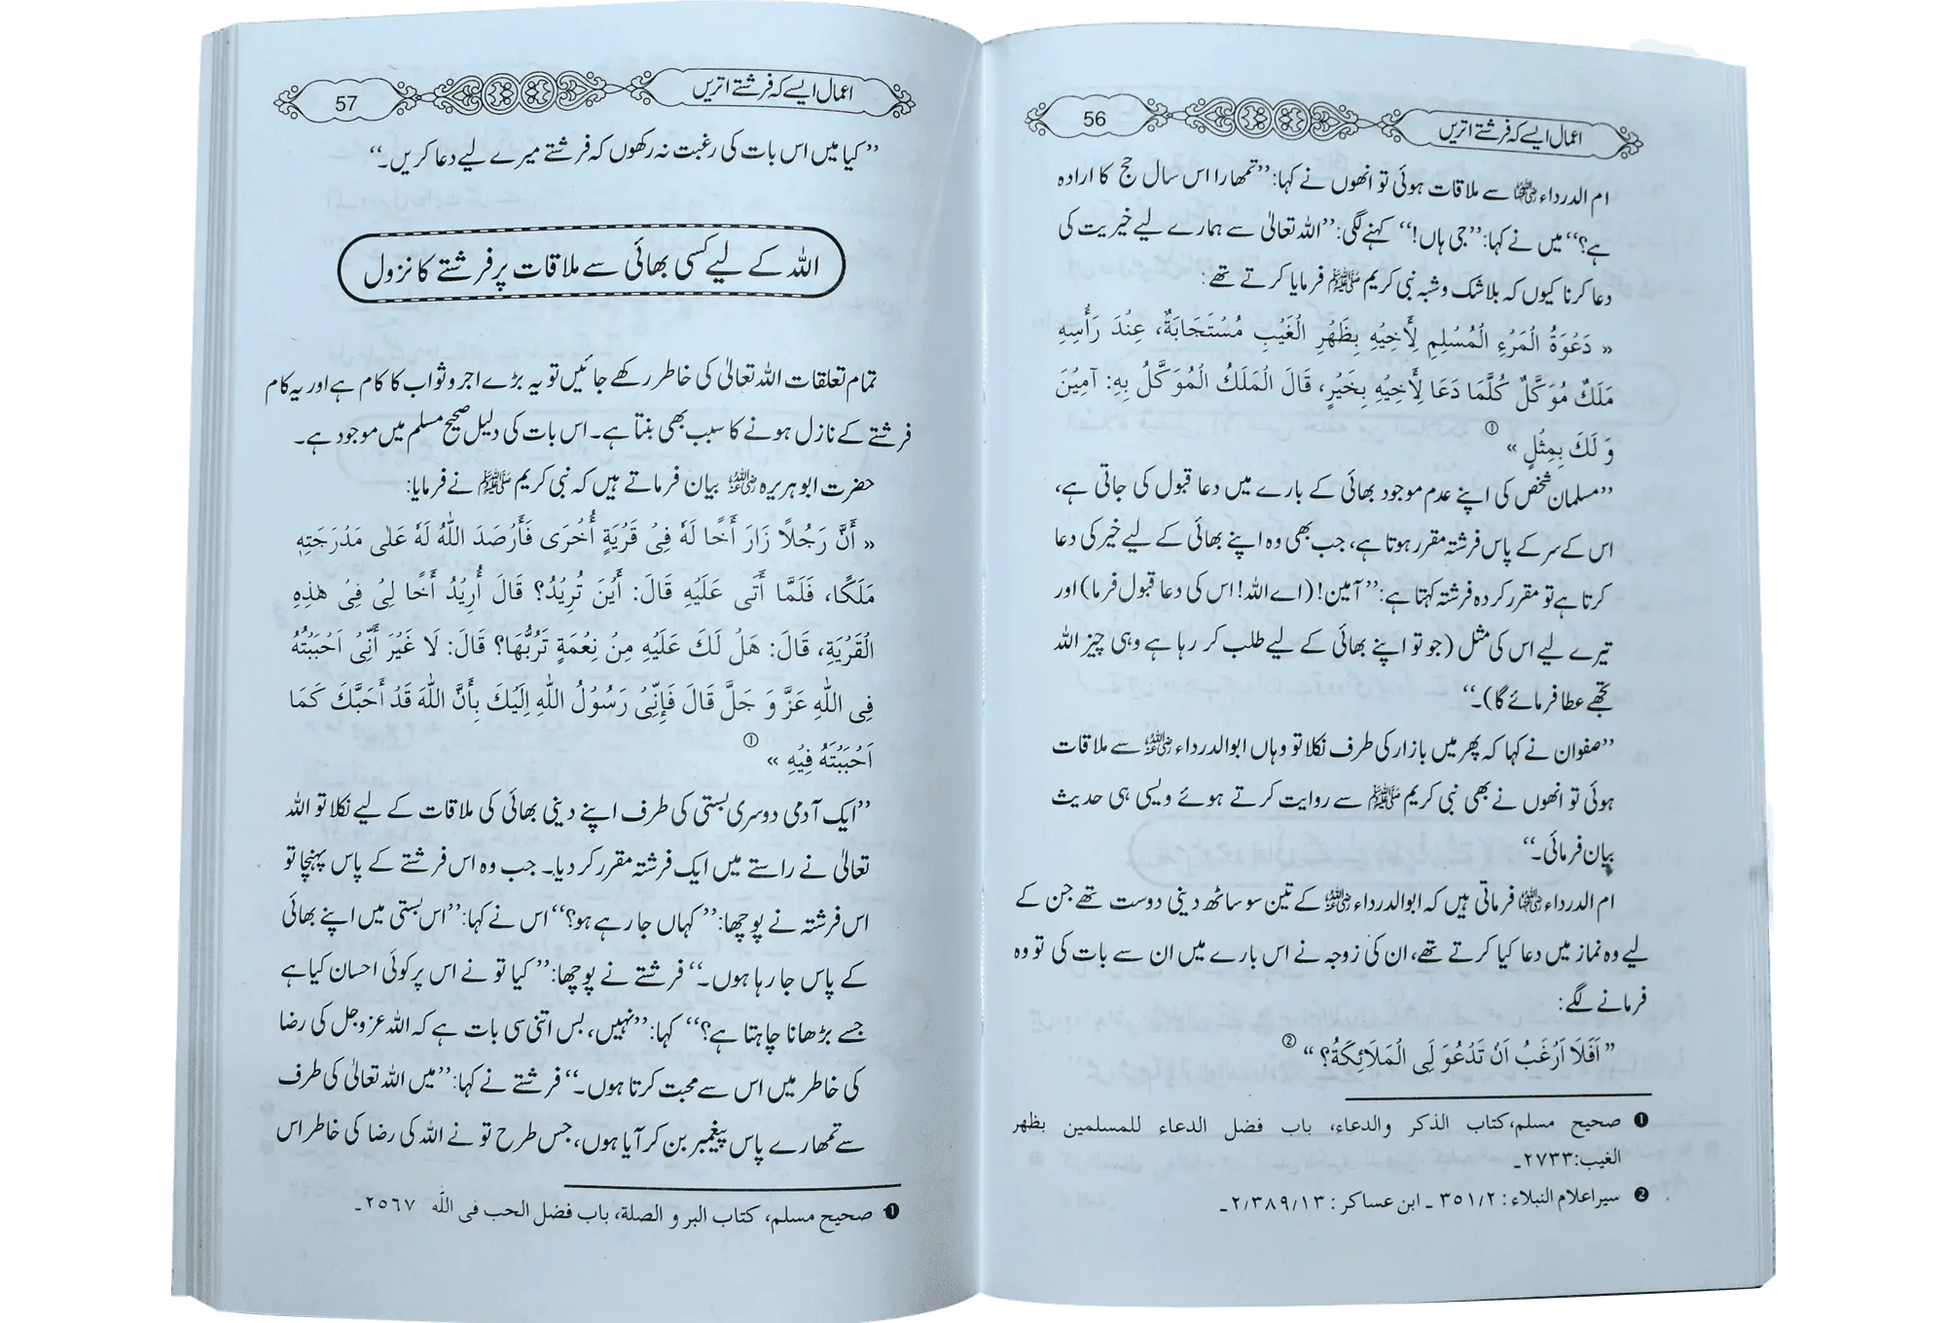 56
اعمال ایسے کہ فرشتے اتریں
ام الدرداء رضی اللہ عنہا سے ملاقات ہوئی تو انھوں نے کہا: ’’تمھارا اس سال حج کا ارادہ
ہے؟‘‘ میں نے کہا: ’’جی ہاں!‘‘ کہنے لگی: ’’اللہ تعالیٰ سے ہمارے لیے خیریت کی
دعا کرنا کیوں کہ بلاشک و شبہ نبی کریم ﷺ فرمایا کرتے تھے:
« دَعْوَةُ الْمَرْءِ الْمُسْلِمِ لِأَخِيْهِ بِظَهْرِ الْغَيْبِ مُسْتَجَابَةٌ، عِنْدَ رَأْسِهِ
مَلَكٌ مُوَكَّلٌ كُلَّمَا دَعَا لِأَخِيْهِ بِخَيْرٍ، قَالَ الْمَلَكُ الْمُوَكَّلُ بِهِ: آمِيْنَ
وَ لَكَ بِمِثْلٍ » ①
’’مسلمان شخص کی اپنے عدم موجود بھائی کے بارے میں دعا قبول کی جاتی ہے،
اس کے سر کے پاس فرشتہ مقرر ہوتا ہے، جب بھی وہ اپنے بھائی کے لیے خیر کی دعا
کرتا ہے تو مقرر کردہ فرشتہ کہتا ہے: ’’آمین! (اے اللہ! اس کی دعا قبول فرما) اور
تیرے لیے اس کی مثل (جو تو اپنے بھائی کے لیے طلب کر رہا ہے وہی چیز اللہ
تجھے عطا فرمائے گا)۔‘‘
’’صفوان نے کہا کہ پھر میں بازار کی طرف نکلا تو وہاں ابوالدرداء رضی اللہ عنہ سے ملاقات
ہوئی تو انھوں نے بھی نبی کریم ﷺ سے روایت کرتے ہوئے ویسی ہی حدیث
بیان فرمائی۔‘‘
ام الدرداء رضی اللہ عنہا فرماتی ہیں کہ ابوالدرداء رضی اللہ عنہ کے تین سو ساٹھ دینی دوست تھے جن کے
لیے وہ نماز میں دعا کیا کرتے تھے، ان کی زوجہ نے اس بارے میں ان سے بات کی تو وہ
فرمانے لگے:
” اَفَلَا اَرْغَبُ اَنْ تَدْعُوَ لِي الْمَلَائِكَةُ؟ “ ②
❶ صحيح مسلم، كتاب الذكر والدعاء، باب فضل الدعاء للمسلمين بظهر
الغيب: ٢٧٣٣۔
❷ سير اعلام النبلاء : ٣٥١/٢ ۔ ابن عساكر : ٢/٣٨٩/١٣۔
57
اعمال ایسے کہ فرشتے اتریں
’’کیا میں اس بات کی رغبت نہ رکھوں کہ فرشتے میرے لیے دعا کریں۔‘‘
اللہ کے لیے کسی بھائی سے ملاقات پر فرشتے کا نزول
تمام تعلقات اللہ تعالیٰ کی خاطر رکھے جائیں تو یہ بڑے اجر و ثواب کا کام ہے اور یہ کام
فرشتے کے نازل ہونے کا سبب بھی بنتا ہے۔ اس بات کی دلیل صحیح مسلم میں موجود ہے۔
حضرت ابوہریرہ رضی اللہ عنہ بیان فرماتے ہیں کہ نبی کریم ﷺ نے فرمایا:
« أَنَّ رَجُلًا زَارَ أَخًا لَهُ فِيْ قَرْيَةٍ أُخْرَى فَأَرْصَدَ اللّٰهُ لَهُ عَلٰى مَدْرَجَتِهِ
مَلَكًا، فَلَمَّا أَتَى عَلَيْهِ قَالَ: أَيْنَ تُرِيْدُ؟ قَالَ أُرِيْدُ أَخًا لِيْ فِيْ هٰذِهِ
الْقَرْيَةِ، قَالَ: هَلْ لَكَ عَلَيْهِ مِنْ نِعْمَةٍ تَرُبُّهَا؟ قَالَ: لَا غَيْرَ أَنِّيْ اَحْبَبْتُهُ
فِي اللّٰهِ عَزَّ وَ جَلَّ قَالَ فَإِنِّيْ رَسُوْلُ اللّٰهِ إِلَيْكَ بِأَنَّ اللّٰهَ قَدْ أَحَبَّكَ كَمَا
اَحْبَبْتَهُ فِيْهِ » ①
’’ایک آدمی دوسری بستی کی طرف اپنے دینی بھائی کی ملاقات کے لیے نکلا تو اللہ
تعالیٰ نے راستے میں ایک فرشتہ مقرر کر دیا۔ جب وہ اس فرشتے کے پاس پہنچا تو
اس فرشتہ نے پوچھا: ’’کہاں جا رہے ہو؟‘‘ اس نے کہا: ’’اس بستی میں اپنے بھائی
کے پاس جا رہا ہوں۔‘‘ فرشتے نے پوچھا: ’’کیا تو نے اس پر کوئی احسان کیا ہے
جسے بڑھانا چاہتا ہے؟‘‘ کہا: ’’نہیں، بس اتنی سی بات ہے کہ اللہ عزوجل کی رضا
کی خاطر میں اس سے محبت کرتا ہوں۔‘‘ فرشتے نے کہا: ’’میں اللہ تعالیٰ کی طرف
سے تمھارے پاس پیغمبر بن کر آیا ہوں، جس طرح تو نے اللہ کی رضا کی خاطر اس
❶ صحيح مسلم، كتاب البر و الصلة، باب فضل الحب فى اللّٰه ٢٥٦٧۔